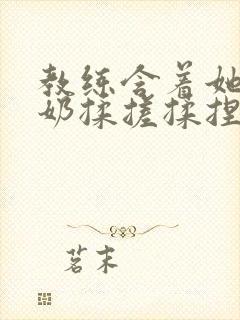 教练含着她
奶揉搓揉捏
茗末